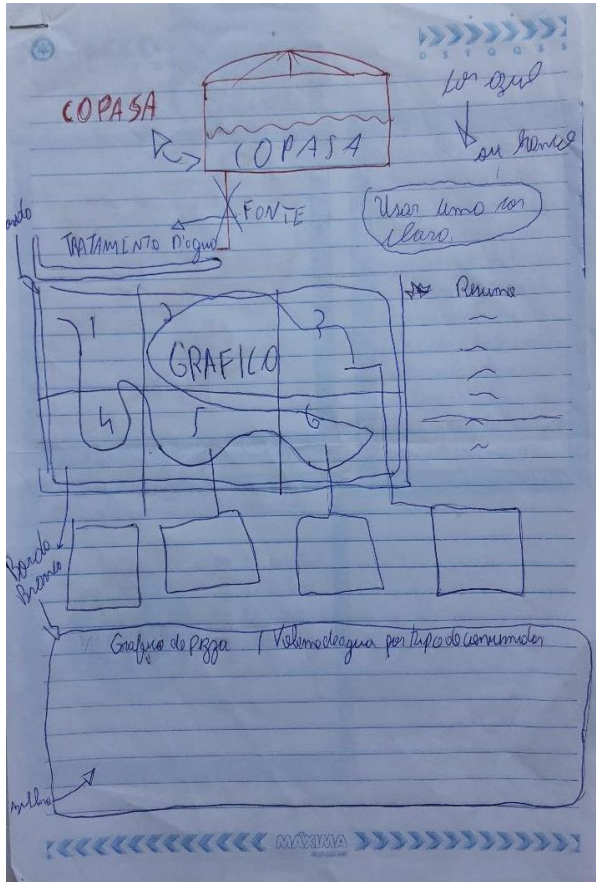 DSTQQSS
COPASA
COPASA
Cor azul
ou branco
FONTE
Usar uma cor
clara
TRATAMENTO D'agua
Resumo
1 2 3
GRAFICO
4 5 6
Borda
Branco
Grafico de pizza / Volume de agua por tipo de consumidor
MÁXIMA